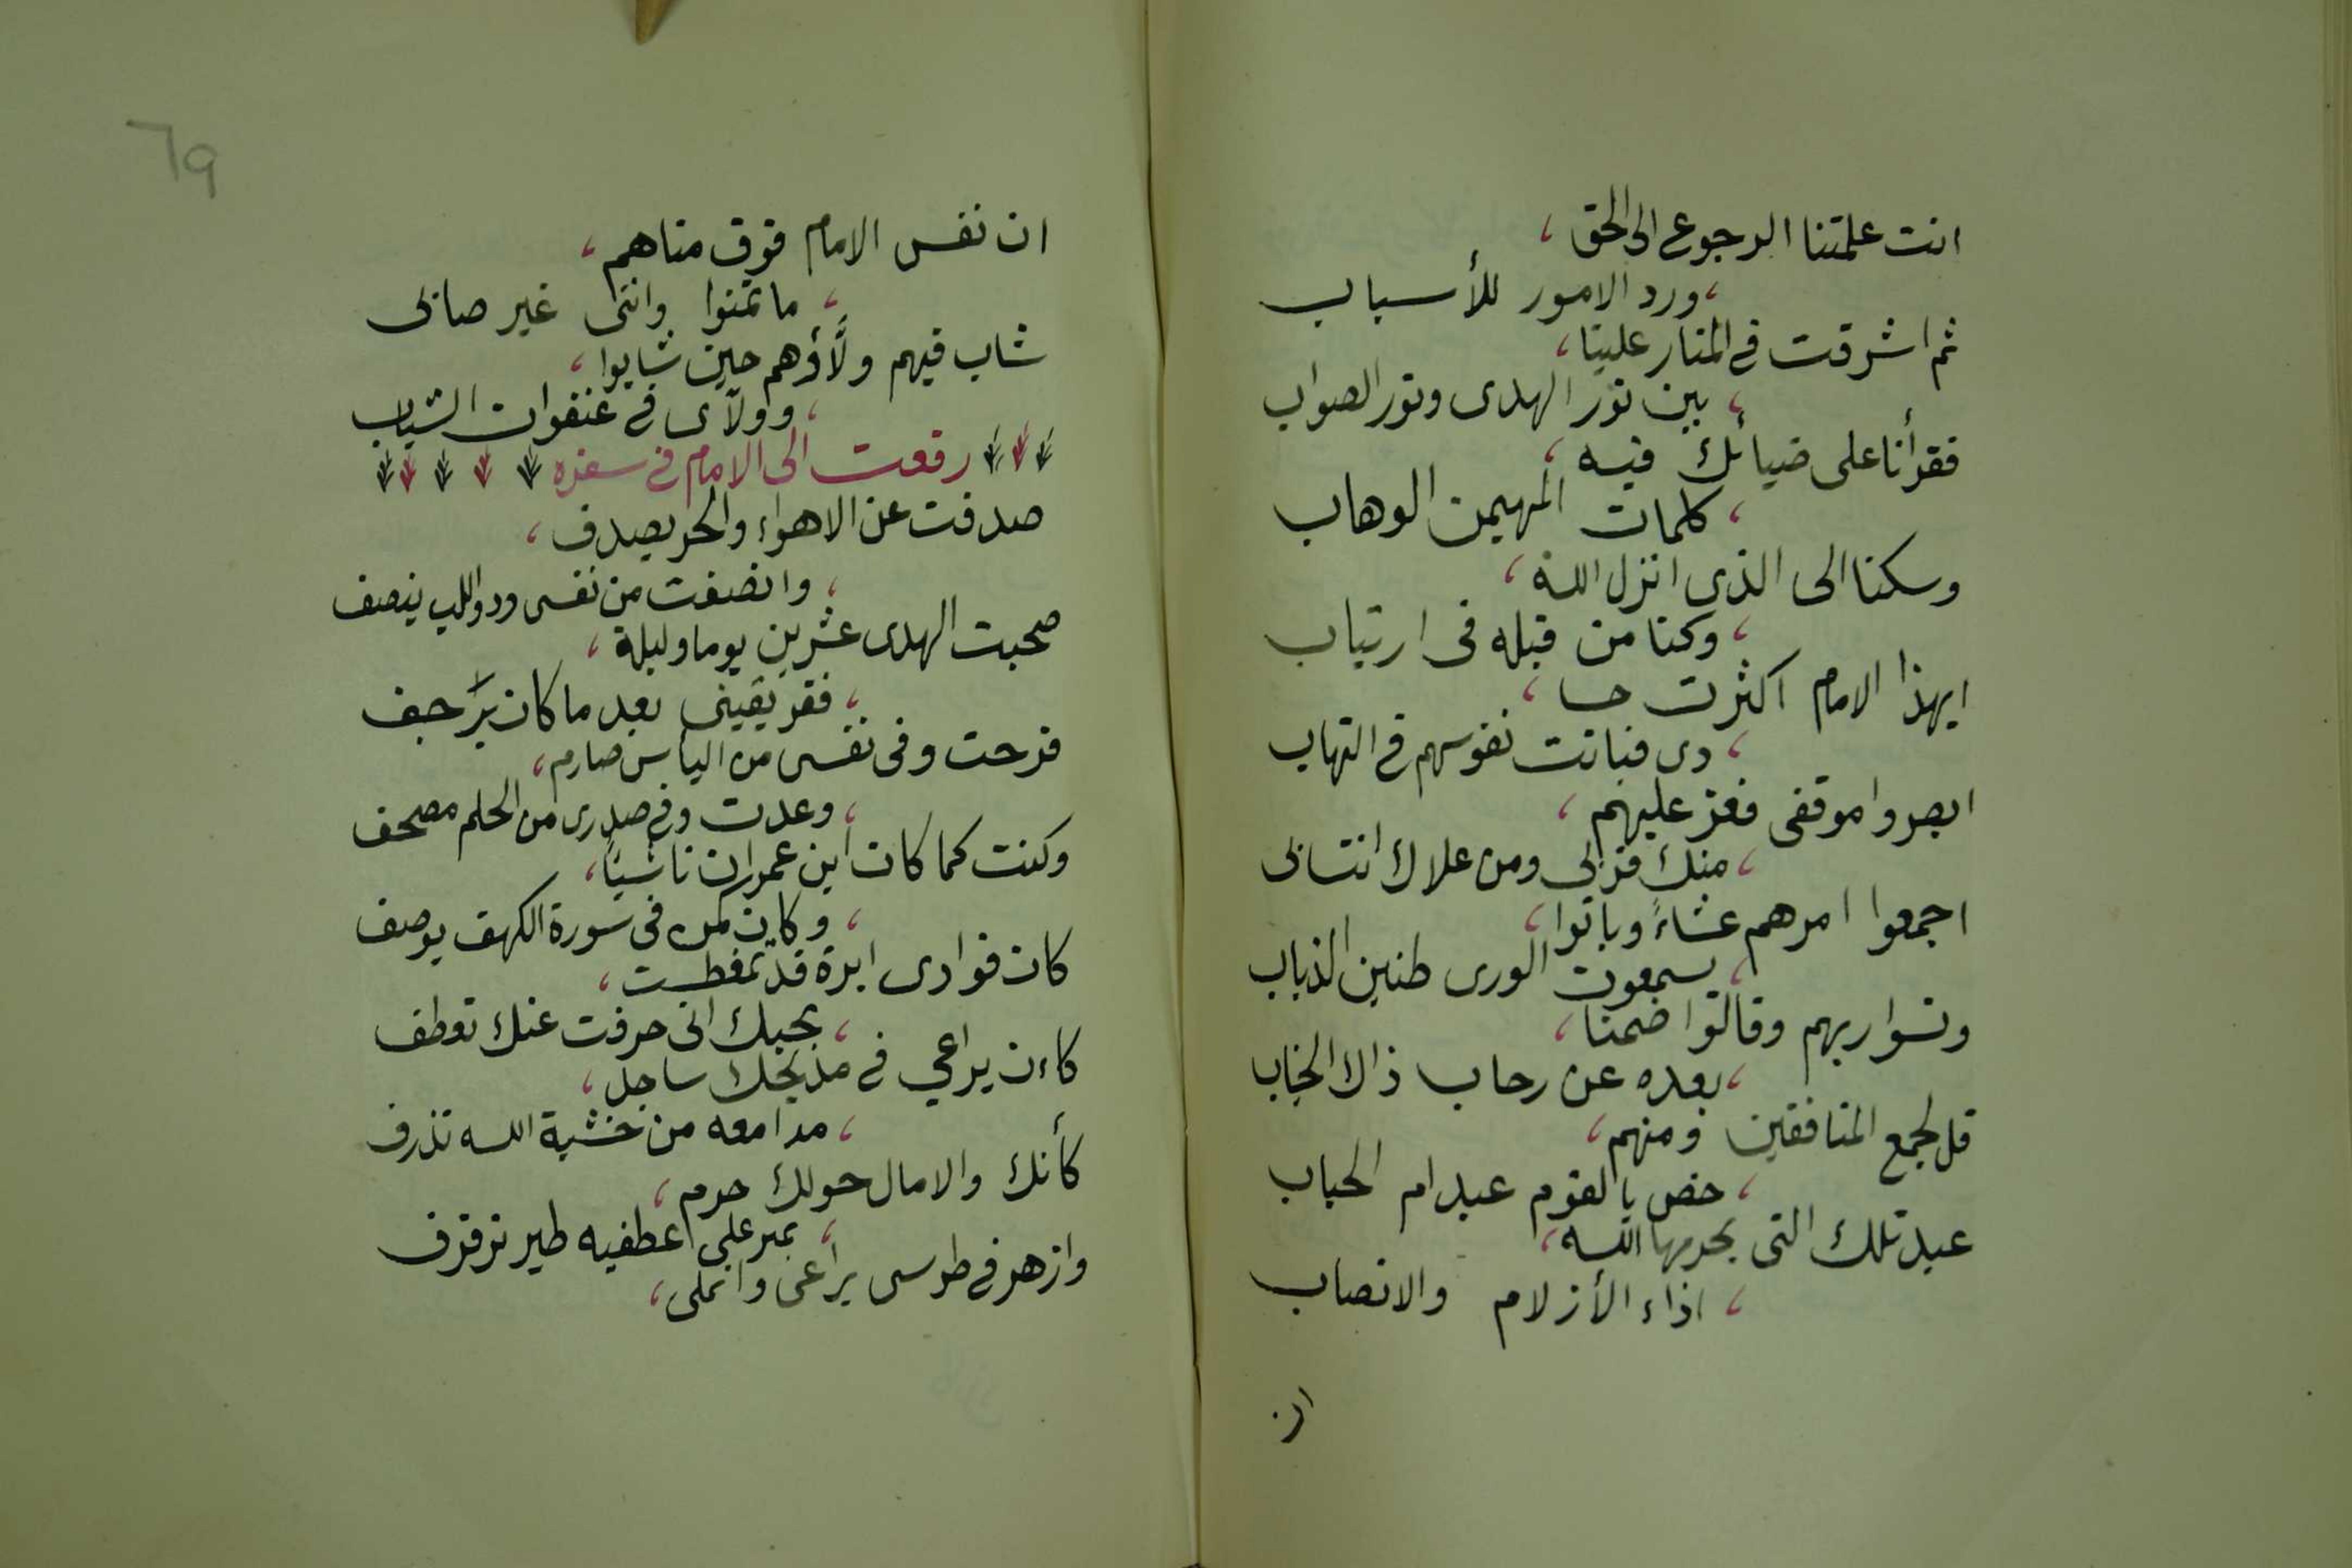 انت علمتنا الرجوع الى الحق ،
، ورد الامور للأسباب
ثم اشرقت في المنار علينا ،
، بين نور الهدى ونور الصواب
فقرأنا على ضيائك فيه ،
، كلمات المهيمن الوهاب
وسكنا الى الذي انزل الله ،
، وكنا من قبله في ارتياب
ايهذا الامام اكثرت حسا ،
، دى فباتت نفوسهم في التهاب
ابصروا موقفى فعز عليهم ،
، منك قربى ومن علاك انتسابى
اجمعوا امرهم عشاءً وباتوا ،
، يسمعون الورى طنين الذباب
ونسوا ربهم وقالوا ضمنا ،
، بعده عن رحاب ذاك الجناب
قل لجمع المنافقين ومنهم ،
، خص بالقوم عبد ام الحباب
عبد تلك التى يحرمها الله ،
، اذاء الأزلام والانصاب
ان
٦٩
ان نفس الامام فوق مناهم ،
، ما تمنوا وانتى غير صابى
شاب فيهم ولاؤهم حين شابوا ،
، وولآى في عنفوان الشباب
رفعت الى الامام في سفره
صدفت عن الاهواء والحر يصدف ،
، وانصفت من نفسى وذو اللب ينصف
صحبت الهدى عشرين يوما وليلة ،
، فقر يقينى بعد ما كان يرجف
فرحت وفى نفسى من اليأس صارم ،
، وعدت وفي صدرى من الحلم مصحف
وكنت كما كان ابن عمران ناشئا ،
، وكان كمن فى سورة الكهف يوصف
كان فوادى ابرة قد تمغطست ،
، بحبك انى حرفت عنك تعطف
كاءن يراعي في مديحك ساجد ،
، مدامعه من خشية الله تذرف
كأنك والامال حولك حوم ،
، نمير على عطفيه طير ترفرف
وازهر في طرسى يراعى وانملى ،